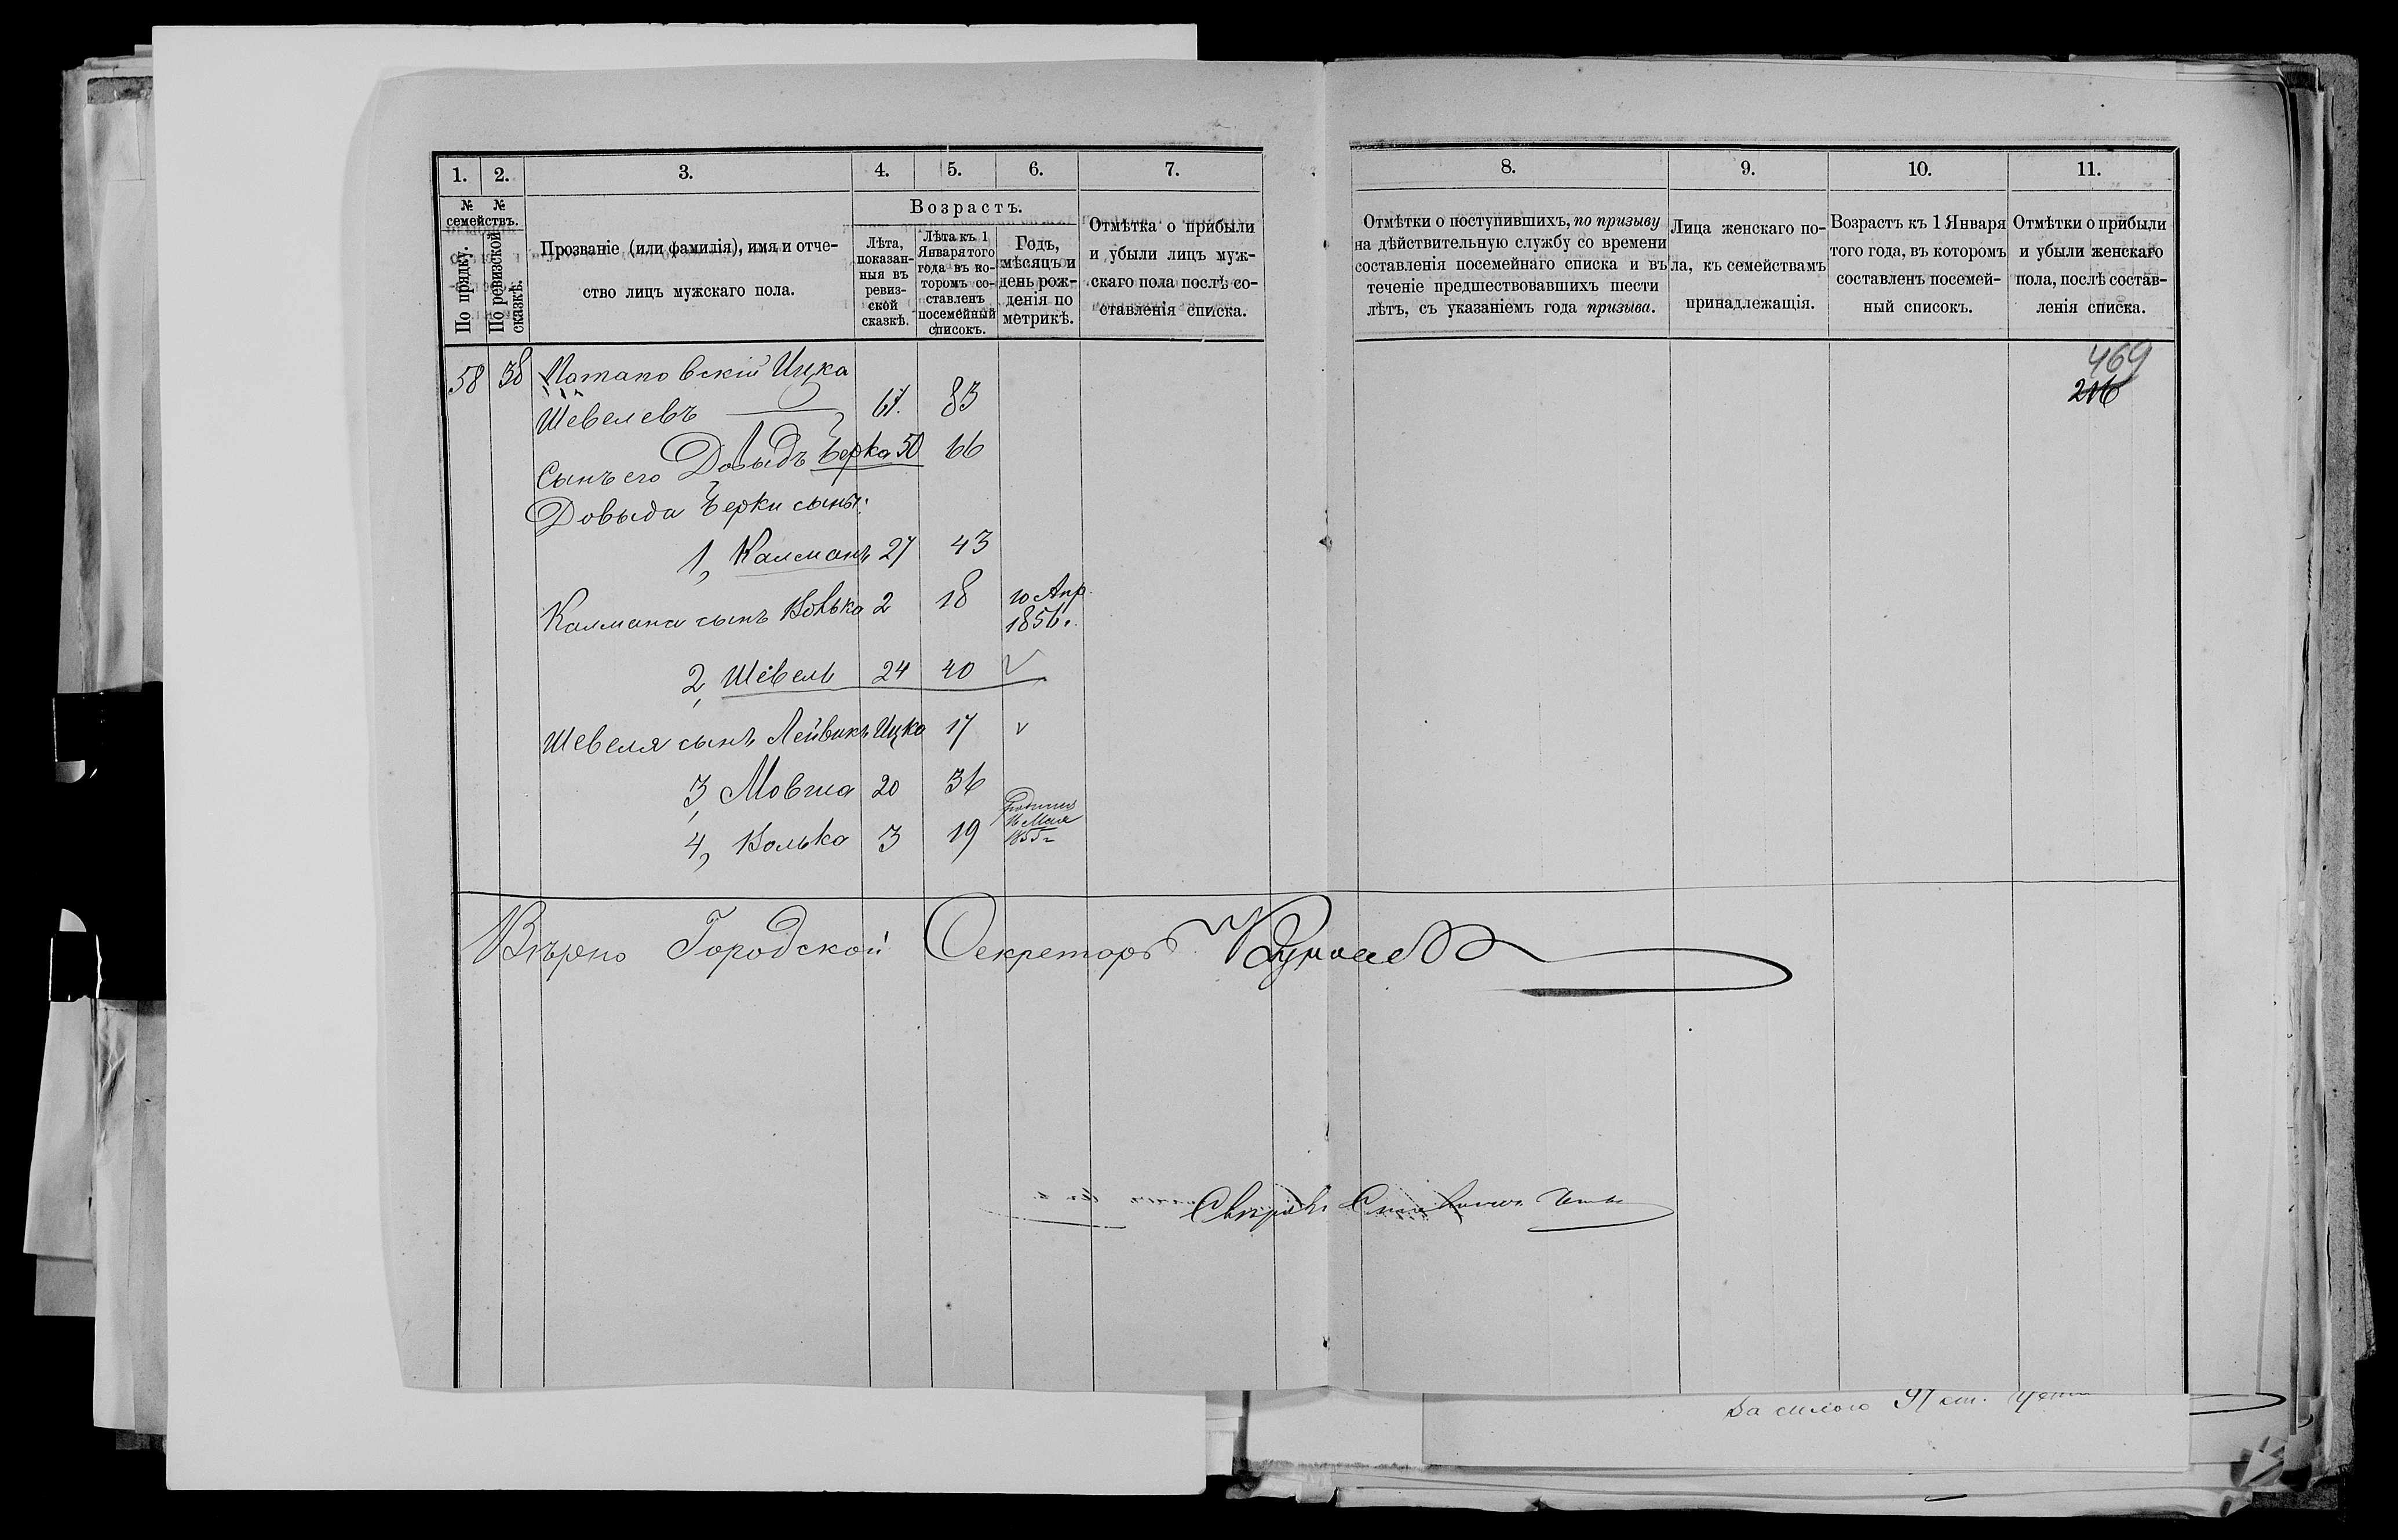 1. 2. 3. 4. 5. 6. 7.
№ № семействъ.
По прядку.
По ревизской сказкѣ.
Прозваніе (или фамилія), имя и отче-
ство лицъ мужскаго пола.
Возрастъ.
Лѣта,
показан-
ныя въ
ревиз-
ской
сказкѣ.
Лѣта къ 1
Января того
года въ ко-
торомъ со-
ставленъ
посемейный
списокъ.
Годъ,
мѣсяцъ и
день рож-
денія по
метрикѣ.
Отмѣтка о прибыли
и убыли лицъ муж-
скаго пола послѣ со-
ставленія списка.
58 38 Потаповскій Ицка
Шевелевъ 67. 83
Сынъ его Довыдъ Берка 50 66
Довыда Берки сынъ:
1, Калманъ 27 43
Калмана сынъ Вовька 2 18 10 Апр.
1856 г.
2, Шевель 24 40
Шевеля сынъ Лейвикъ Ицка 17
3, Мовша 20 36
4, Волька 3 19
16 Мая
1855 г
Вѣрно Городской Секретарь
8. 9. 10. 11.
Отмѣтки о поступившихъ, по призыву
на дѣйствительную службу со времени
составленія посемейнаго списка и въ
теченіе предшествовавшихъ шести
лѣтъ, съ указаніемъ года призыва.
Лица женскаго по-
ла, къ семействамъ
принадлежащія.
Возрастъ къ 1 Января
того года, въ которомъ
составленъ посемей-
ный списокъ.
Отмѣтки о прибыли
и убыли женскаго
пола, послѣ состав-
ленія списка.
469
216
97